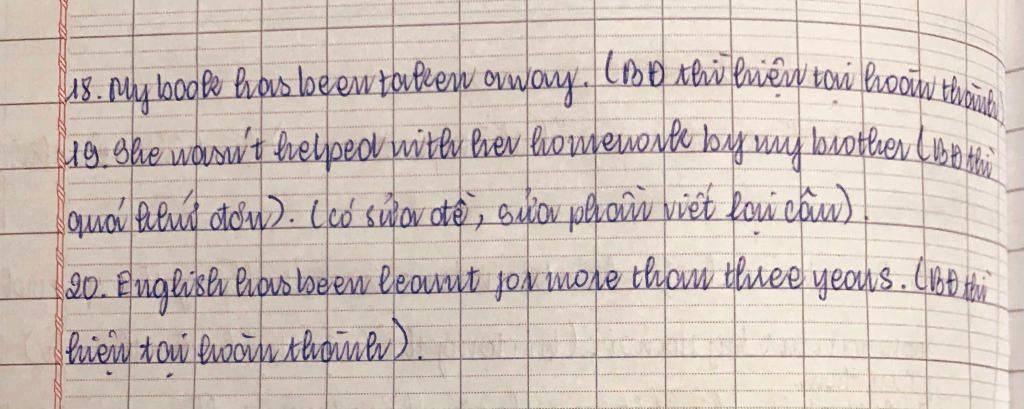 18. My book has been taken away. (BĐ thì hiện tại hoàn thành)
19. She wasn't helped with her homework by my brother (BĐ thì
quá khứ đơn). (có sửa đề, sửa phần viết lại câu).
20. English has been learnt for more than three years. (BĐ thì
hiện tại hoàn thành).